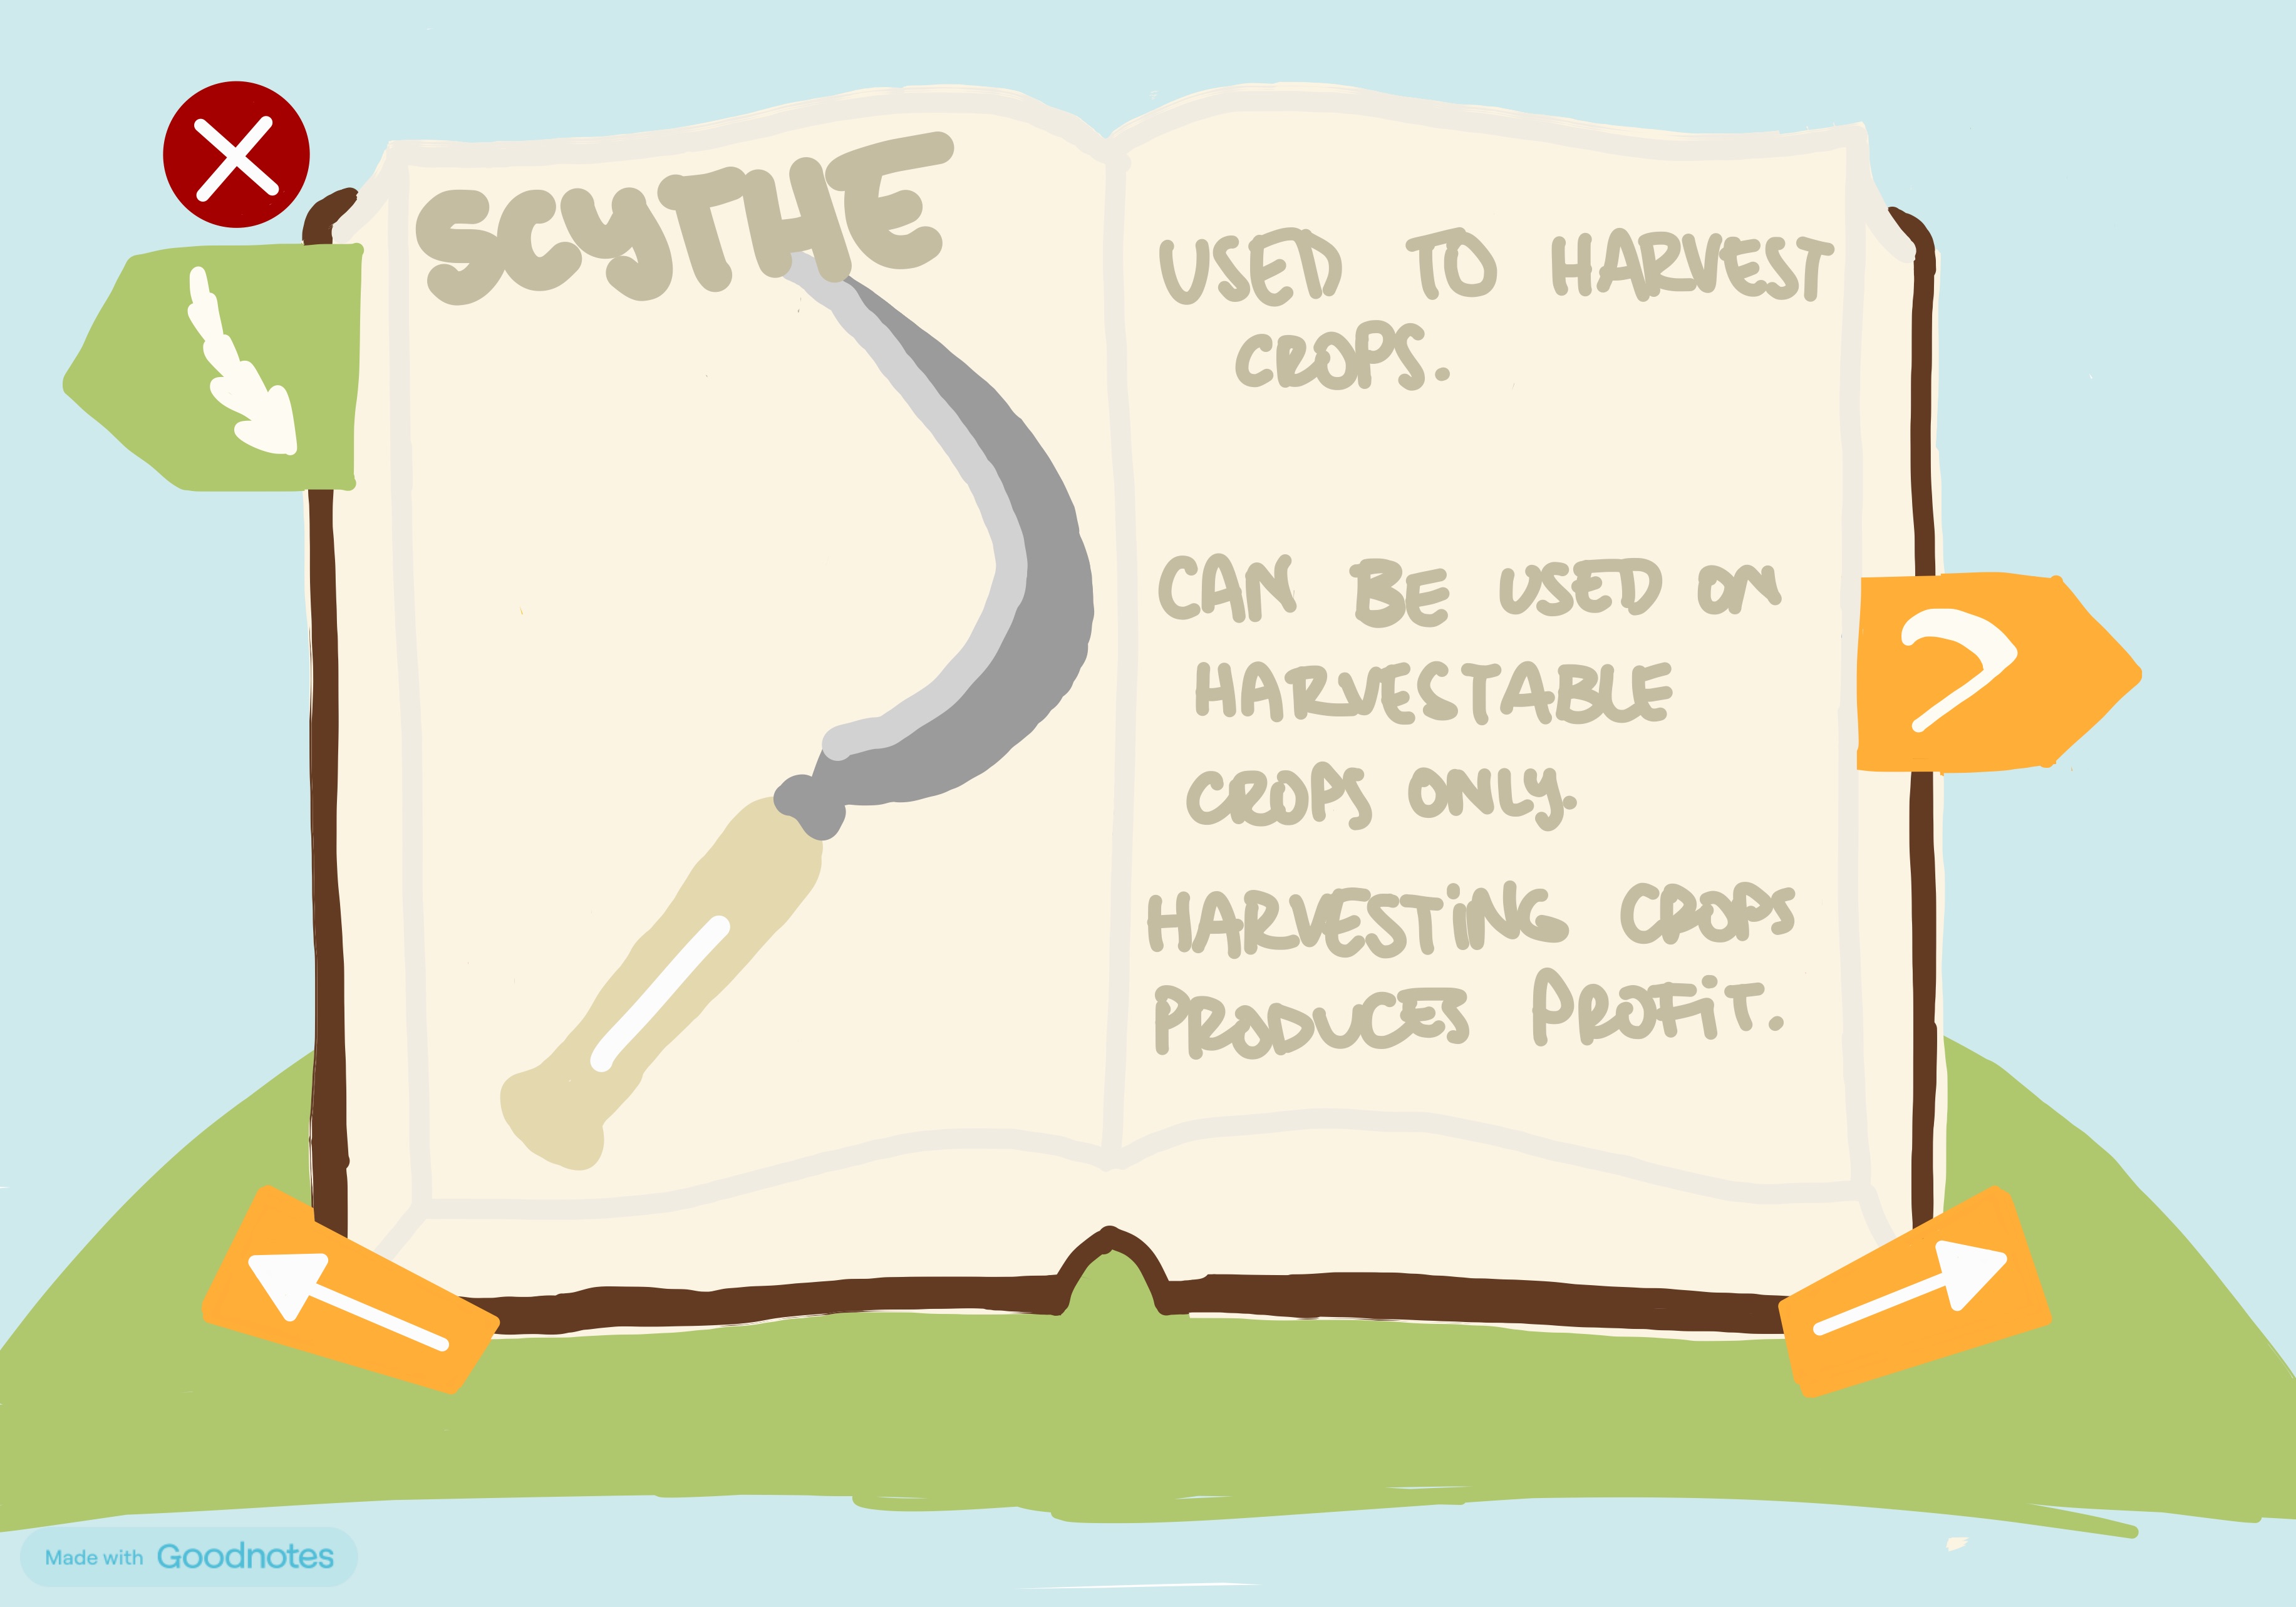 SCYTHE
USED TO HARVEST
CROPS.
CAN BE USED ON
HARVESTABLE
CROPS ONLY.
HARVESTING CROPS
PRODUCES PROFIT.
Made with Goodnotes